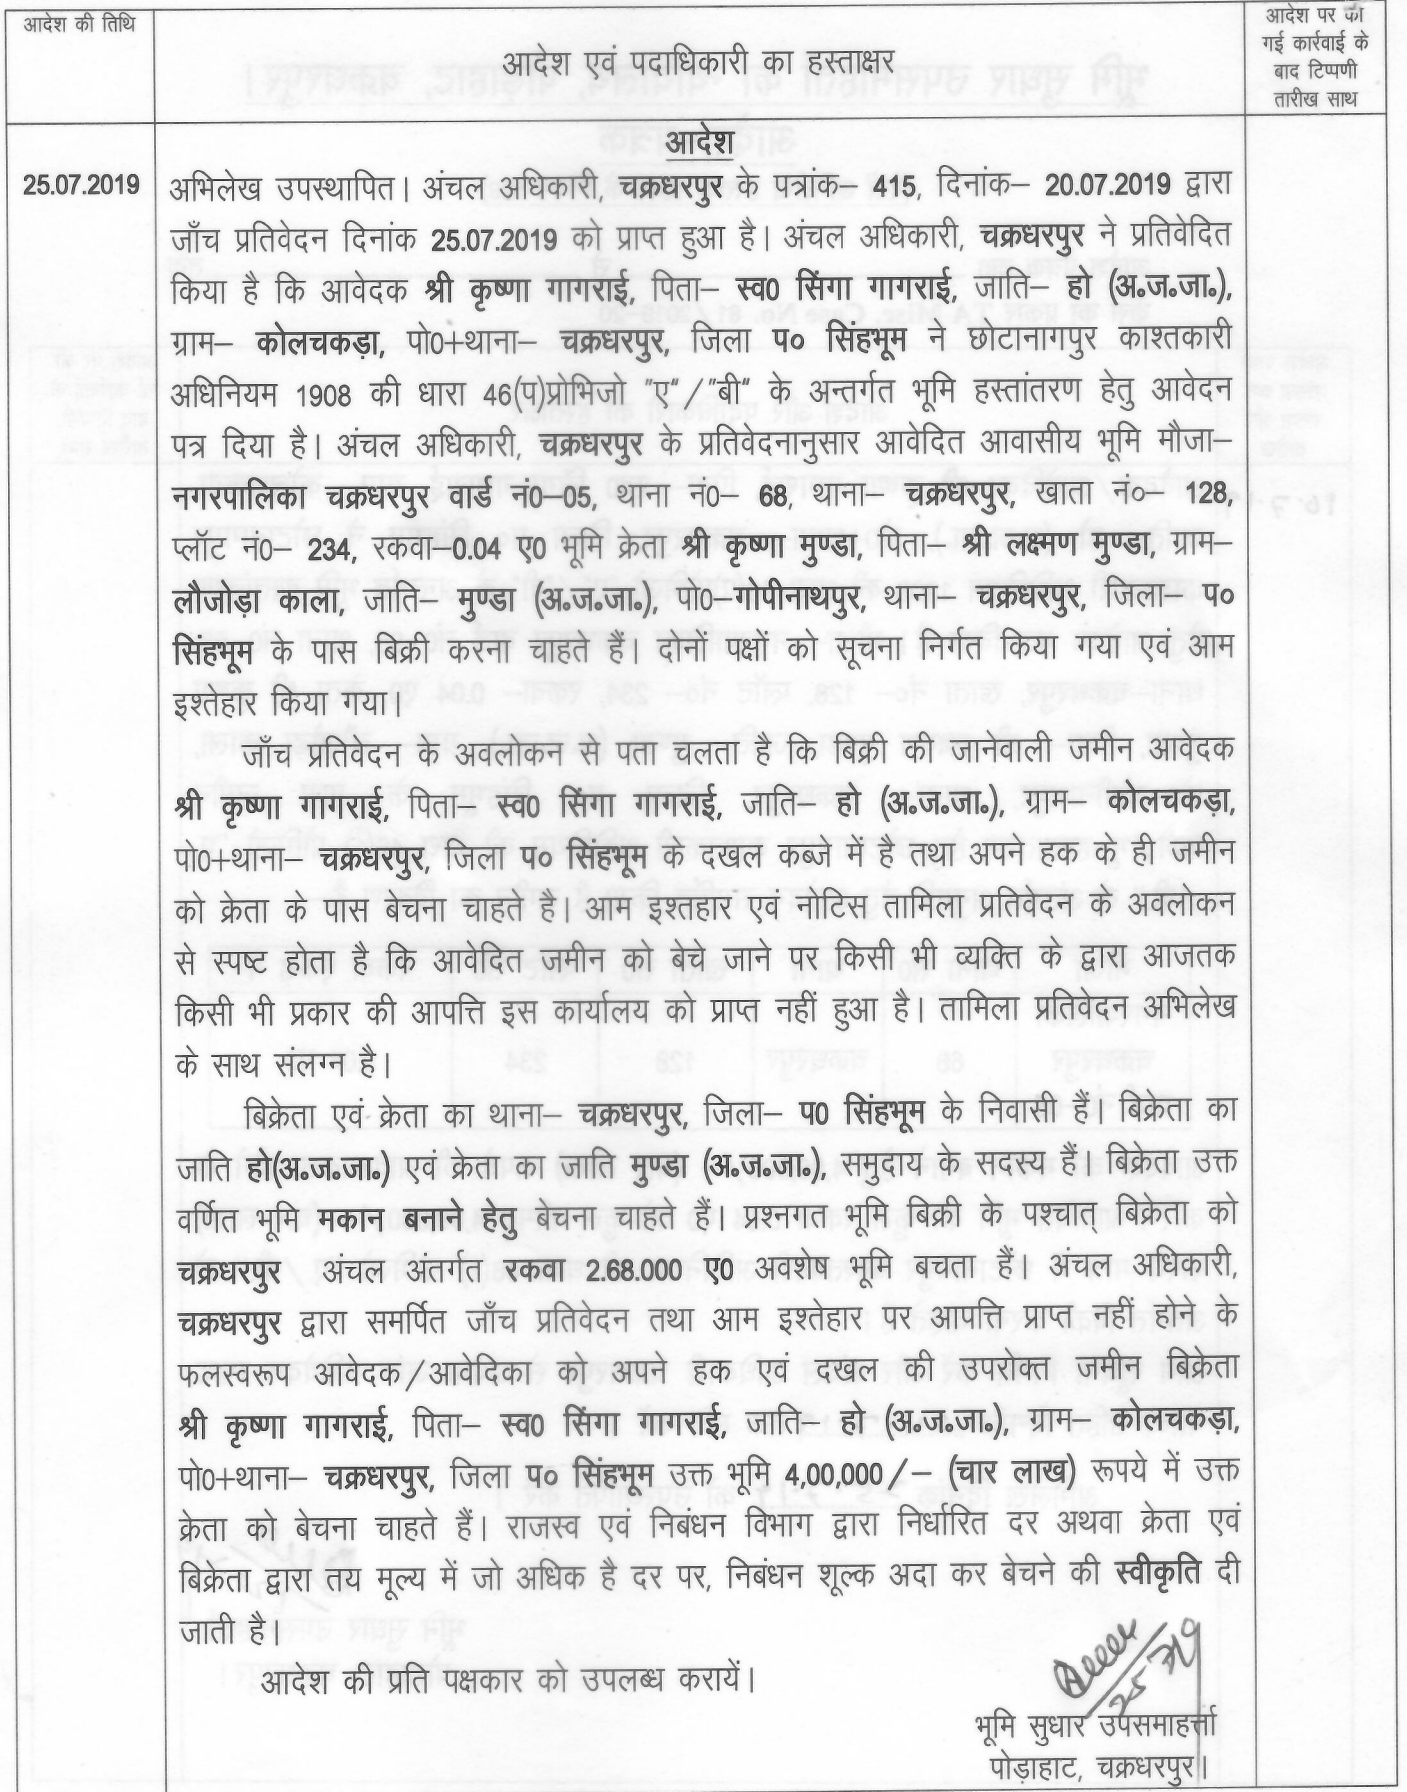 आदेश की तिथि
आदेश एवं पदाधिकारी का हस्ताक्षर
आदेश पर की
गई कार्रवाई के
बाद टिप्पणी
तारीख साथ
आदेश
25.07.2019
अभिलेख उपस्थापित। अंचल अधिकारी, चक्रधरपुर के पत्रांक– 415, दिनांक– 20.07.2019 द्वारा
जाँच प्रतिवेदन दिनांक 25.07.2019 को प्राप्त हुआ है। अंचल अधिकारी, चक्रधरपुर ने प्रतिवेदित
किया है कि आवेदक श्री कृष्णा गागराई, पिता– स्व0 सिंगा गागराई, जाति– हो (अ.ज.जा.),
ग्राम– कोलचकड़ा, पो0+थाना– चक्रधरपुर, जिला प० सिंहभूम ने छोटानागपुर काश्तकारी
अधिनियम 1908 की धारा 46(प)प्रोभिजो "ए"/"बी" के अन्तर्गत भूमि हस्तांतरण हेतु आवेदन
पत्र दिया है। अंचल अधिकारी, चक्रधरपुर के प्रतिवेदनानुसार आवेदित आवासीय भूमि मौजा–
नगरपालिका चक्रधरपुर वार्ड नं0–05, थाना नं0– 68, थाना– चक्रधरपुर, खाता नं०– 128,
प्लॉट नं0– 234, रकवा–0.04 ए0 भूमि क्रेता श्री कृष्णा मुण्डा, पिता– श्री लक्ष्मण मुण्डा, ग्राम–
लौजोड़ा काला, जाति– मुण्डा (अ.ज.जा.), पो0–गोपीनाथपुर, थाना– चक्रधरपुर, जिला– प०
सिंहभूम के पास बिक्री करना चाहते हैं। दोनों पक्षों को सूचना निर्गत किया गया एवं आम
इश्तेहार किया गया।
जाँच प्रतिवेदन के अवलोकन से पता चलता है कि बिक्री की जानेवाली जमीन आवेदक
श्री कृष्णा गागराई, पिता– स्व0 सिंगा गागराई, जाति– हो (अ.ज.जा.), ग्राम– कोलचकड़ा,
पो0+थाना– चक्रधरपुर, जिला प० सिंहभूम के दखल कब्जे में है तथा अपने हक के ही जमीन
को क्रेता के पास बेचना चाहते है। आम इश्तहार एवं नोटिस तामिला प्रतिवेदन के अवलोकन
से स्पष्ट होता है कि आवेदित जमीन को बेचे जाने पर किसी भी व्यक्ति के द्वारा आजतक
किसी भी प्रकार की आपत्ति इस कार्यालय को प्राप्त नहीं हुआ है। तामिला प्रतिवेदन अभिलेख
के साथ संलग्न है।
बिक्रेता एवं क्रेता का थाना– चक्रधरपुर, जिला– प0 सिंहभूम के निवासी हैं। बिक्रेता का
जाति हो(अ.ज.जा.) एवं क्रेता का जाति मुण्डा (अ.ज.जा.), समुदाय के सदस्य हैं। बिक्रेता उक्त
वर्णित भूमि मकान बनाने हेतु बेचना चाहते हैं। प्रश्नगत भूमि बिक्री के पश्चात् बिक्रेता को
चक्रधरपुर अंचल अंतर्गत रकवा 2.68.000 ए0 अवशेष भूमि बचता हैं। अंचल अधिकारी,
चक्रधरपुर द्वारा समर्पित जाँच प्रतिवेदन तथा आम इश्तेहार पर आपत्ति प्राप्त नहीं होने के
फलस्वरूप आवेदक/आवेदिका को अपने हक एवं दखल की उपरोक्त जमीन बिक्रेता
श्री कृष्णा गागराई, पिता– स्व0 सिंगा गागराई, जाति– हो (अ.ज.जा.), ग्राम– कोलचकड़ा,
पो0+थाना– चक्रधरपुर, जिला प० सिंहभूम उक्त भूमि 4,00,000/– (चार लाख) रूपये में उक्त
क्रेता को बेचना चाहते हैं। राजस्व एवं निबंधन विभाग द्वारा निर्धारित दर अथवा क्रेता एवं
बिक्रेता द्वारा तय मूल्य में जो अधिक है दर पर, निबंधन शूल्क अदा कर बेचने की स्वीकृति दी
जाती है।
आदेश की प्रति पक्षकार को उपलब्ध करायें।
भूमि सुधार उपसमाहर्त्ता
पोड़ाहाट, चक्रधरपुर।